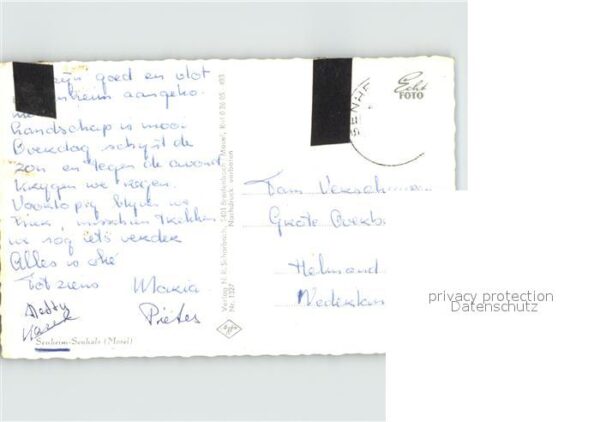 zijn goed en vlot
heim aangeko-
landschap is mooi
Overdag schijnt de
zon en tegen de avond
krijgen we regen.
Voorlopig blijven we
hier, misschien trekken
we nog iets verder
Alles is oké
Tot ziens Maria
Pieter
Senheim-Senhals (Mosel)
Verlag H. R. Scharbach,
Nr. 1327
Nachdruck verboten
SENH
Echt
FOTO
Fam Verschuren
Grote Overb
Helmond
Nederlan
privacy protection
Datenschutz